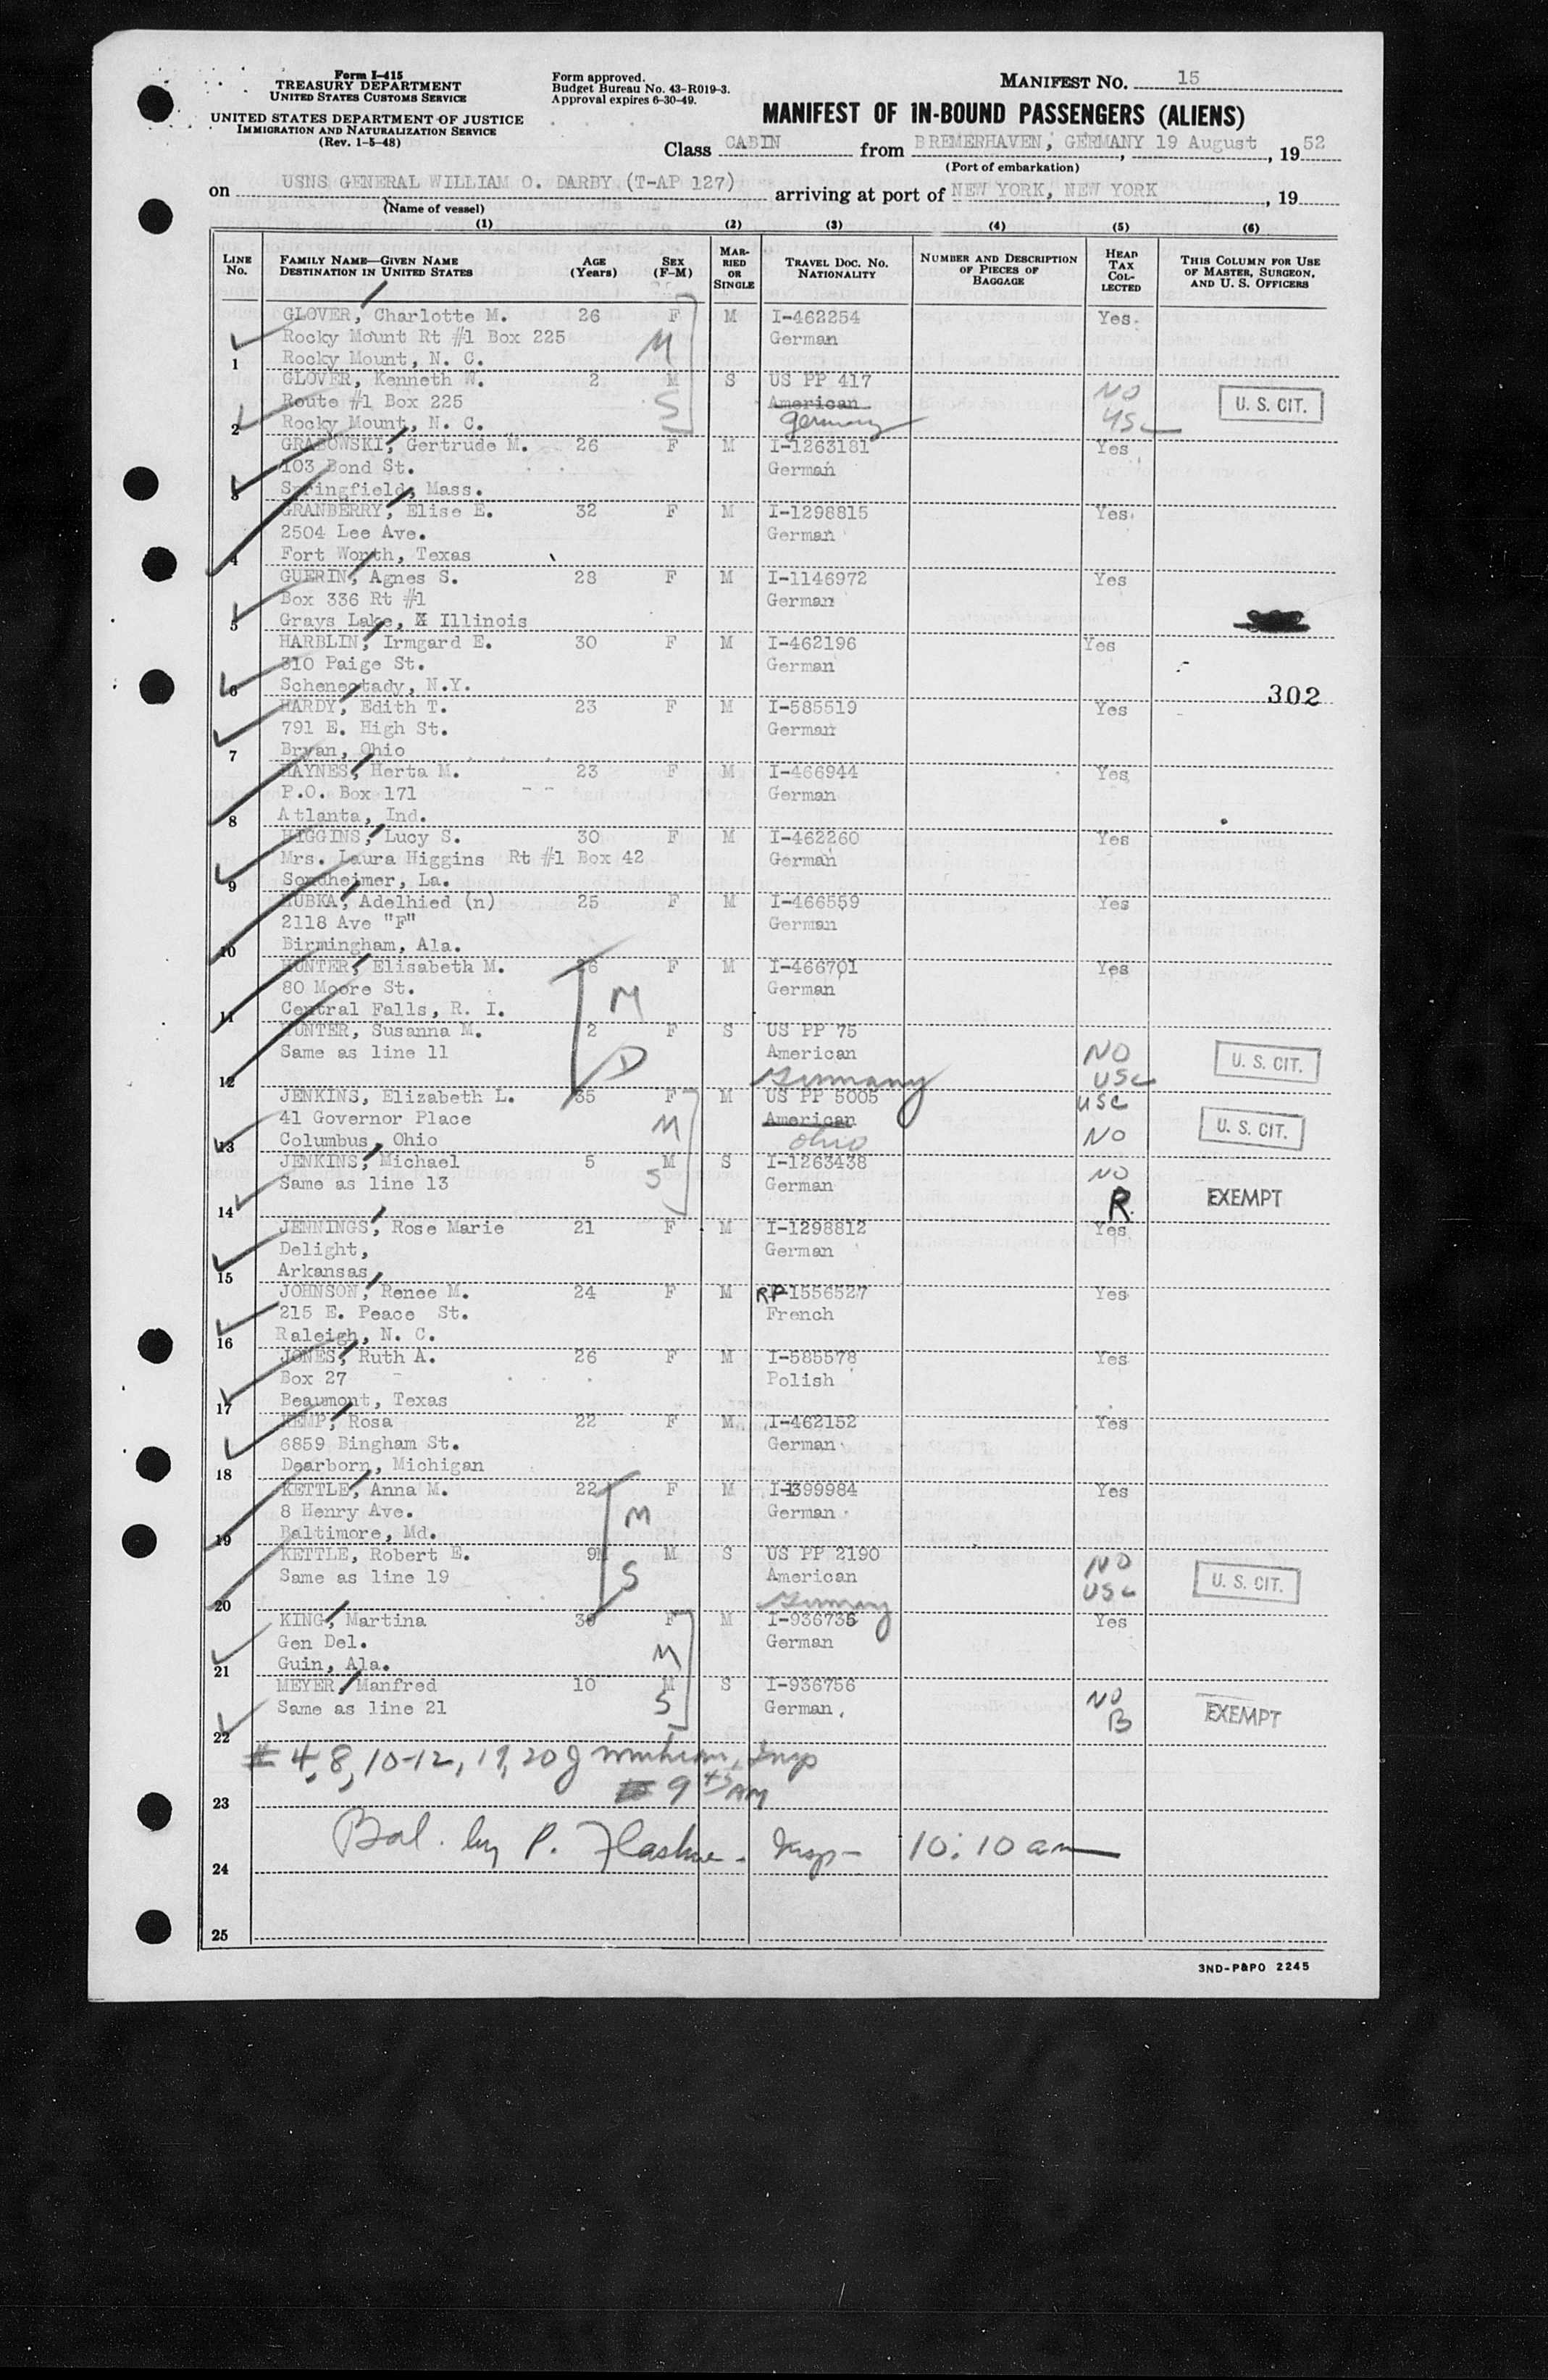 Form I-415
TREASURY DEPARTMENT
UNITED STATES CUSTOMS SERVICE
UNITED STATES DEPARTMENT OF JUSTICE
IMMIGRATION AND NATURALIZATION SERVICE
(Rev. 1-5-48)
Form approved.
Budget Bureau No. 43-R019-3.
Approval expires 6-30-49.
MANIFEST NO. 15
MANIFEST OF IN-BOUND PASSENGERS (ALIENS)
Class CABIN from BREMERHAVEN, GERMANY, 19 August, 1952
(Port of embarkation)
on USNS GENERAL WILLIAM O. DARBY (T-AP 127) arriving at port of NEW YORK, NEW YORK, 19
(Name of vessel)
(1) (2) (3) (4) (5) (6)
LINE No. FAMILY NAME—GIVEN NAME DESTINATION IN UNITED STATES AGE (Years) SEX (F-M) MARRIED OR SINGLE TRAVEL DOC. NO. NATIONALITY NUMBER AND DESCRIPTION OF PIECES OF BAGGAGE HEAD TAX COLLECTED THIS COLUMN FOR USE OF MASTER, SURGEON, AND U. S. OFFICERS
GLOVER, Charlotte M. 26 F M I-462254 Yes
Rocky Mount Rt #1 Box 225 M German
1 Rocky Mount, N. C.
GLOVER, Kenneth W. 2 M S US PP 417 NO
Route #1 Box 225 S American U. S. CIT.
2 Rocky Mount, N. C. Germany USC
GRABOWSKI, Gertrude M. 26 F M I-1263181 Yes
103 Bond St. German
3 Springfield, Mass.
GRANBERRY, Elise E. 32 F M I-1298815 Yes
2504 Lee Ave. German
4 Fort Worth, Texas
GUERIN, Agnes S. 28 F M I-1146972 Yes
Box 336 Rt #1 German
5 Grays Lake, X Illinois
HARBLIN, Irmgard E. 30 F M I-462196 Yes
310 Paige St. German
6 Schenectady, N.Y. 302
HARDY, Edith T. 23 F M I-585519 Yes
791 E. High St. German
7 Bryan, Ohio
HAYNES, Herta M. 23 F M I-466944 Yes
P.O. Box 171 German
8 Atlanta, Ind.
HIGGINS, Lucy S. 30 F M I-462260 Yes
Mrs. Laura Higgins Rt #1 Box 42 German
9 Sondheimer, La.
HUBKA, Adelhied (n) 25 F M I-466559 Yes
2118 Ave "F" German
10 Birmingham, Ala.
HUNTER, Elisabeth M. 26 F M I-466701 Yes
80 Moore St. M German
11 Central Falls, R. I.
HUNTER, Susanna M. 2 F S US PP 75
Same as line 11 D American NO U. S. CIT.
12 Germany USC
JENKINS, Elizabeth L. 35 F M US PP 5005 USC
41 Governor Place M American U. S. CIT.
13 Columbus, Ohio Ohio NO
JENKINS, Michael 5 M S I-1263438 NO
Same as line 13 S German R EXEMPT
14
JENNINGS, Rose Marie 21 F M I-1298812 Yes
Delight, German
15 Arkansas
JOHNSON, Renee M. 24 F M RP-1556527 Yes
215 E. Peace St. French
16 Raleigh, N. C.
JONES, Ruth A. 26 F M I-585578 Yes
Box 27 Polish
17 Beaumont, Texas
KEMP, Rosa 22 F M I-462152 Yes
6859 Bingham St. German
18 Dearborn, Michigan
KETTLE, Anna M. 22 F M I-1399984 Yes
8 Henry Ave. M German
19 Baltimore, Md.
KETTLE, Robert E. 9M M S US PP 2190 NO
Same as line 19 S American USC U. S. CIT.
20 Germany
KING, Martina 30 F M I-936735 Yes
Gen Del. German
21 Guin, Ala. M
MEYER, Manfred 10 M S I-936756 NO
Same as line 21 S German B EXEMPT
22
# 4, 8, 10-12, 19, 20 Insp
9 45 AM
23
Bal. by P. Insp - 10:10 am
24
25
3ND-P&PO 2245